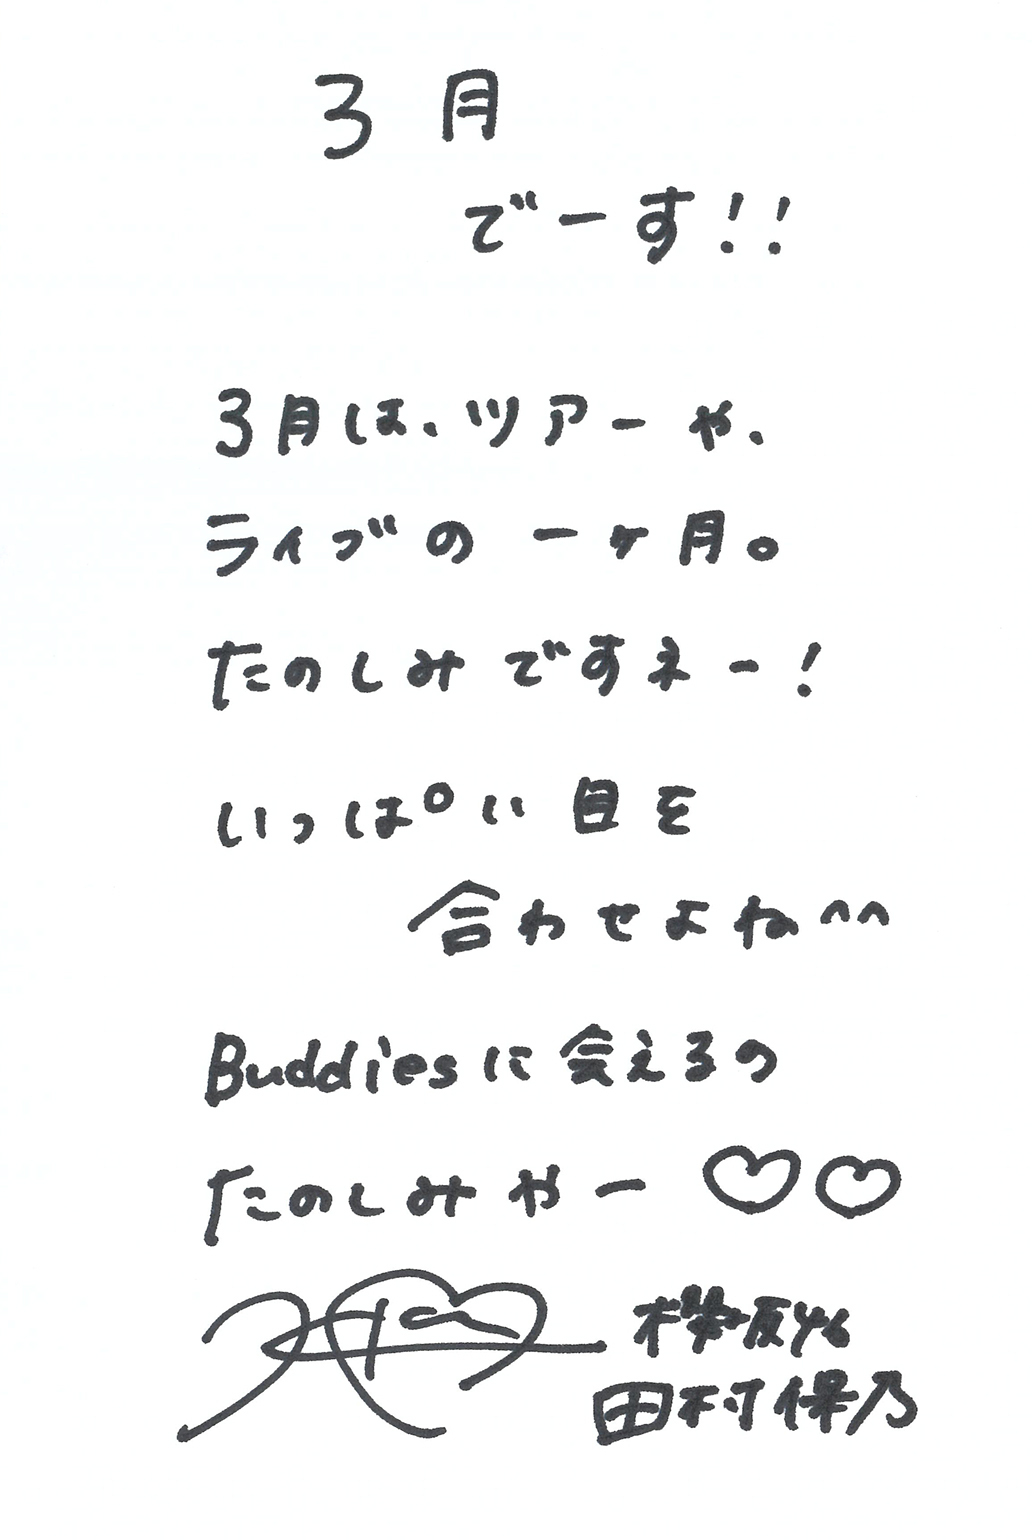 3月
でーす!!
3月は、ツアーや、
ライブの一ヶ月。
たのしみですネー!
いっぱい目を
合わせよね^^
Buddiesに会えるの
たのしみやー♡♡
櫻坂46
田村保乃